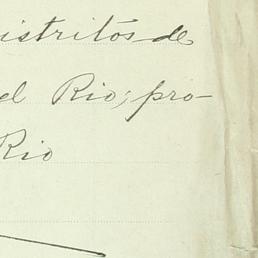 istritos de
el Rio; pro-
Rio